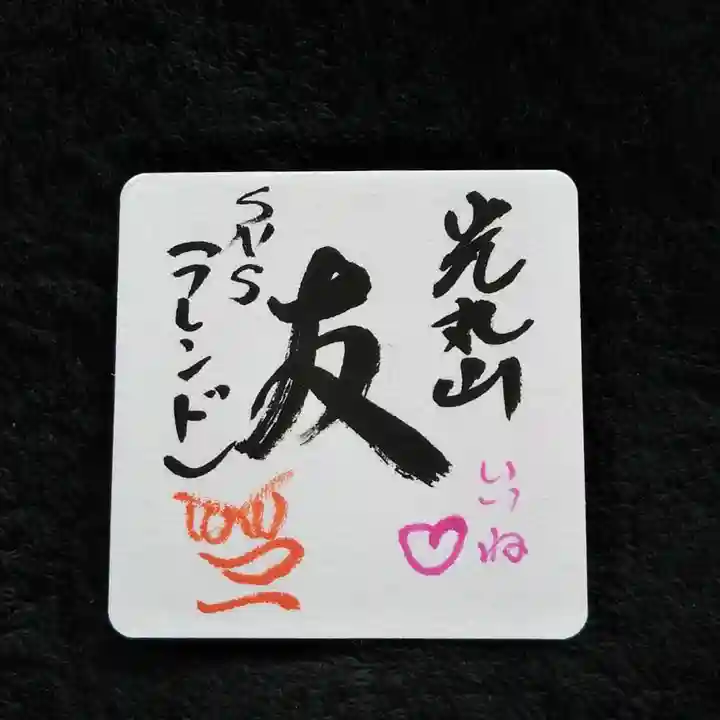 光丸山
いいね
友
SNS
(フレンド)